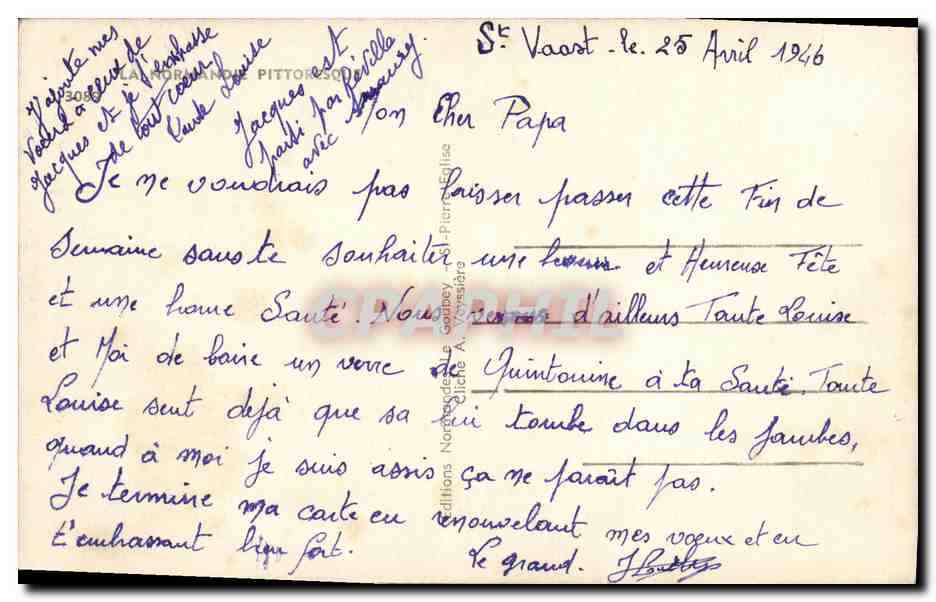 St Vaast - le 25 Avril 1946
LA NORMANDIE PITTORESQUE
308
J'ajoute mes
voeux à ceux de
Jacques et je t'embrasse
de tout coeur
Tante Louise
Jacques est
parti par
avec
Mon Cher Papa
Je ne voudrais pas laisser passer cette Fin de
Semaine sans te souhaiter une bonne et Heureuse Fête
et une bonne Santé. Nous venons d'ailleurs Tante Louise
et Moi de boire un verre de Quintonine à ta Santé. Tante
Louise sent dejà que sa lui tombe dans les Jambes,
quand à moi je suis assis ça ne parait pas.
Je termine ma carte en renouvelant mes voeux et en
t'embrassant bien fort.
Le grand.
Editions Normandes Le Goubey - St-Pierre-Eglise
Cliché A. Veyssière
CPAPHIL